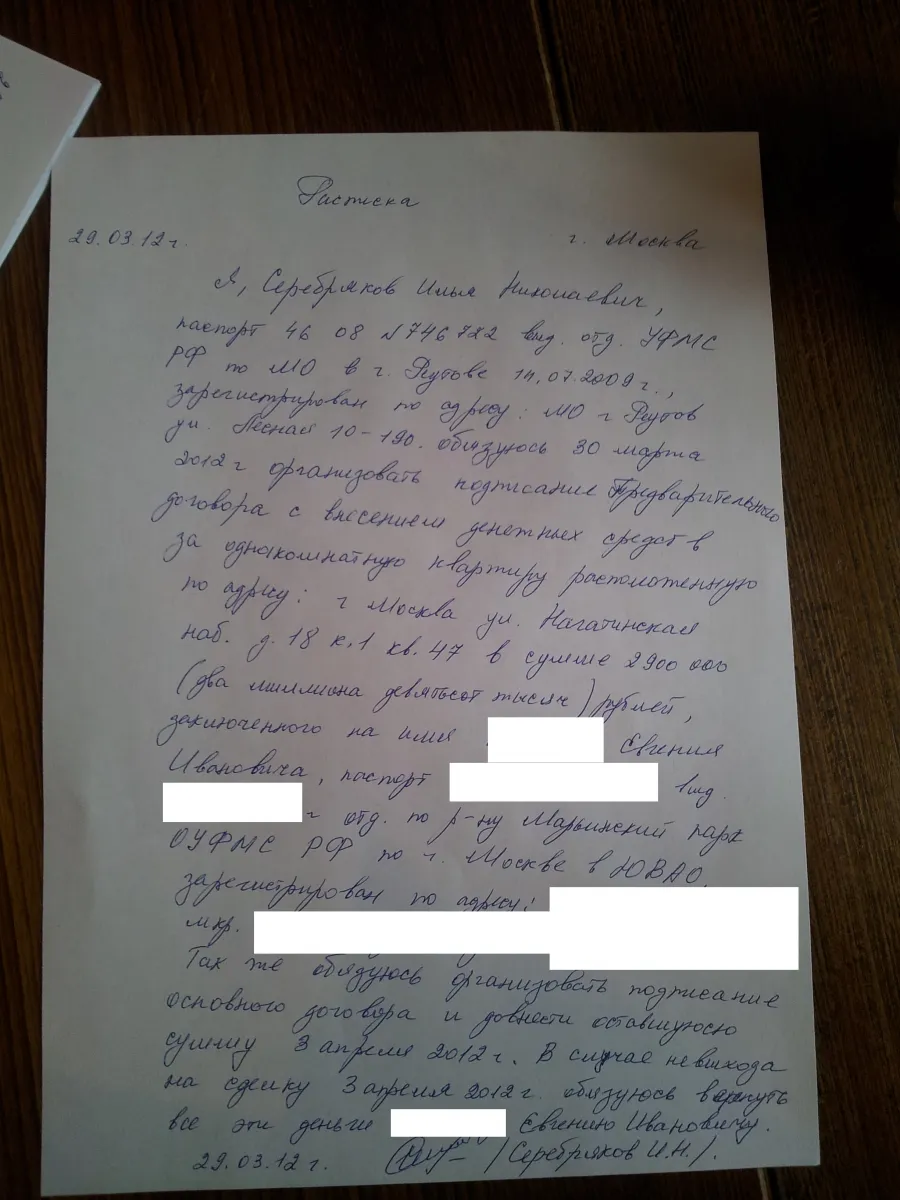 Расписка
29.03.12 г. г. Москва
Я, Серебряков Илья Николаевич,
паспорт 46 08 №746722 выд. отд. УФМС
РФ по МО в г. Реутове 14.07.2009 г.,
зарегистрирован по адресу: МО г Реутов
ул. Лесная 10-190. обязуюсь 30 марта
2012 г организовать подписание Предварительного
договора с внесением денежных средств
за однокомнатную квартиру расположенную
по адресу: г Москва ул. Нагатинская
наб. д. 18 к. 1 кв. 47 в сумме 2900 000
(два миллиона девятьсот тысяч) рублей,
заключенного на имя Евгения
Ивановича, паспорт выд.
г отд. по р-ну Марьинский парк
ОУФМС РФ по г. Москве в ЮВАО,
зарегистрирован по адресу:
мкр.
Так же обязуюсь организовать подписание
основного договора и довнести оставшуюся
сумму 3 апреля 2012 г. В случае невыхода
на сделку 3 апреля 2012 г. обязуюсь вернуть
все эти деньги Евгению Ивановичу.
29.03.12 г. /Серебряков И.Н./.